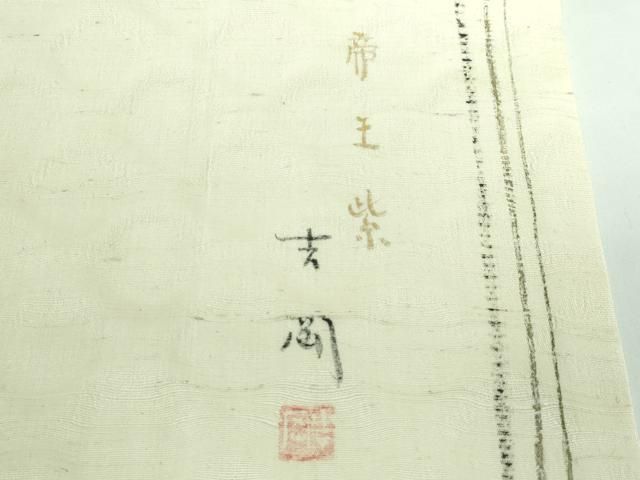 帝王紫
吉岡